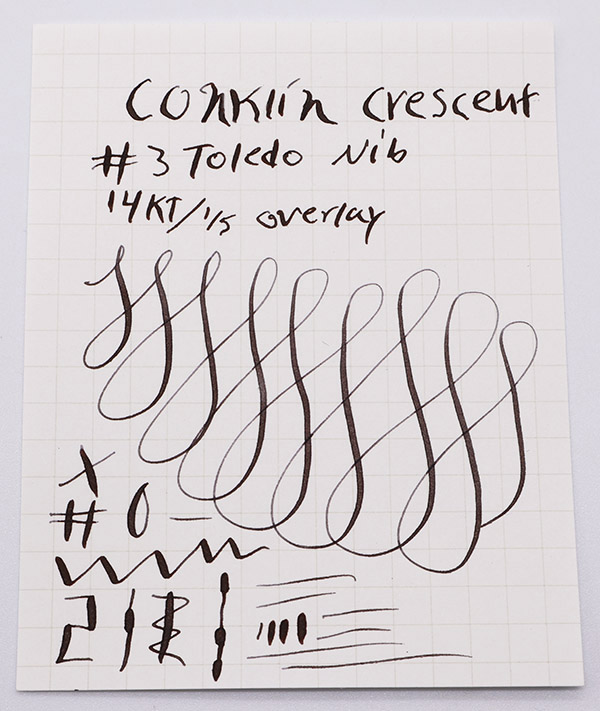 Conklin Crescent
#3 Toledo Nib
14KT/1/5 overlay
X
# 0 —